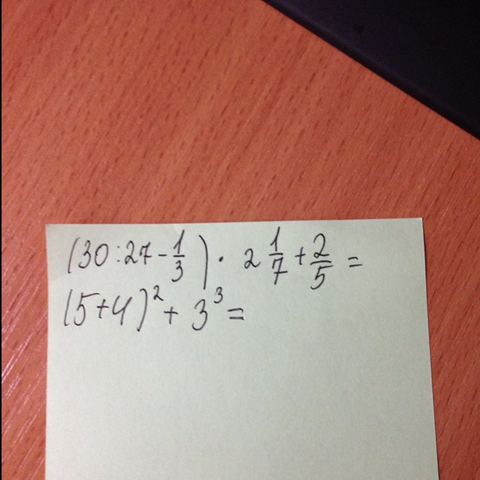 (30:27-1/3)·2 1/7+2/5=
(5+4)²+3³=